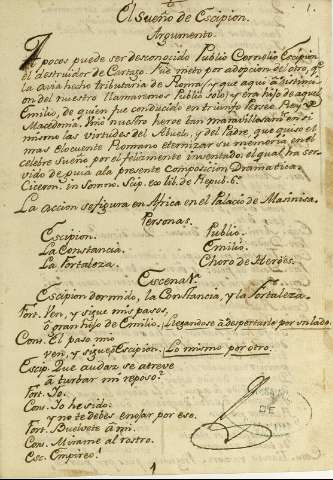 1.
El Sueño de Escipion.
Argumento.
A pocos puede ser desconocido Publio Cornelio Escipion
el destruidor de Cartago. Fue nieto por adopcion del otro, qe.
la avia hecho tributaria de Roma, y que aqui à distinci-
on del nuestro llamaremos Publio solo: y era hijo de aquel
Emilio, de quien fue conducido en triunfo Perseo Rey de
Macedonia. Unió nuestro heroe tan maravillosamte. en si
mismo las virtudes del Abuelo, y del Padre, que quiso el
mas eloquente Romano eternizar su memoria en el
celebre sueño por el felizmente inventado: el qual ha ser-
vido de guia à la presente Composicion Dramatica.
Ciceron. in Somno. Scip. ex lib. de Republ. 6.
La accion se figura en Africa en el Palacio de Masinisa.
Personas.
Escipion. Publio.
La Constancia. Emilio.
La Fortaleza. Choro de Heròes.
Escena 1ª.
Escipion dormido, la Constancia, y la Fortaleza.
Fort. Ven, y sigue mis pasos,
ò gran hijo de Emilio. Llegandose à despertarle por un lado.
Cons. El paso mio
ven, y sigue, Escipion. Lo mismo por otro.
Escip. Que audaz se atreve
à turbar mi reposo?
Fort. Yo.
Cons. Yo he sido:
y no te debes enojar por eso.
Fort. Buelvete à mi.
Cons. Mirame al rostro.
Esc. Empireo!
DE
1